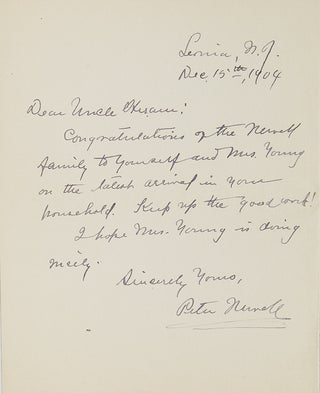 Leonia, N.J.
Dec. 15th, 1904
Dear Uncle Hiram:
Congratulations of the Newell
family to Yourself and Mrs. Young
on the latest arrival in your
household. Keep up the good work!
I hope Mrs. Young is doing
nicely.
Sincerely Yours,
Peter Newell